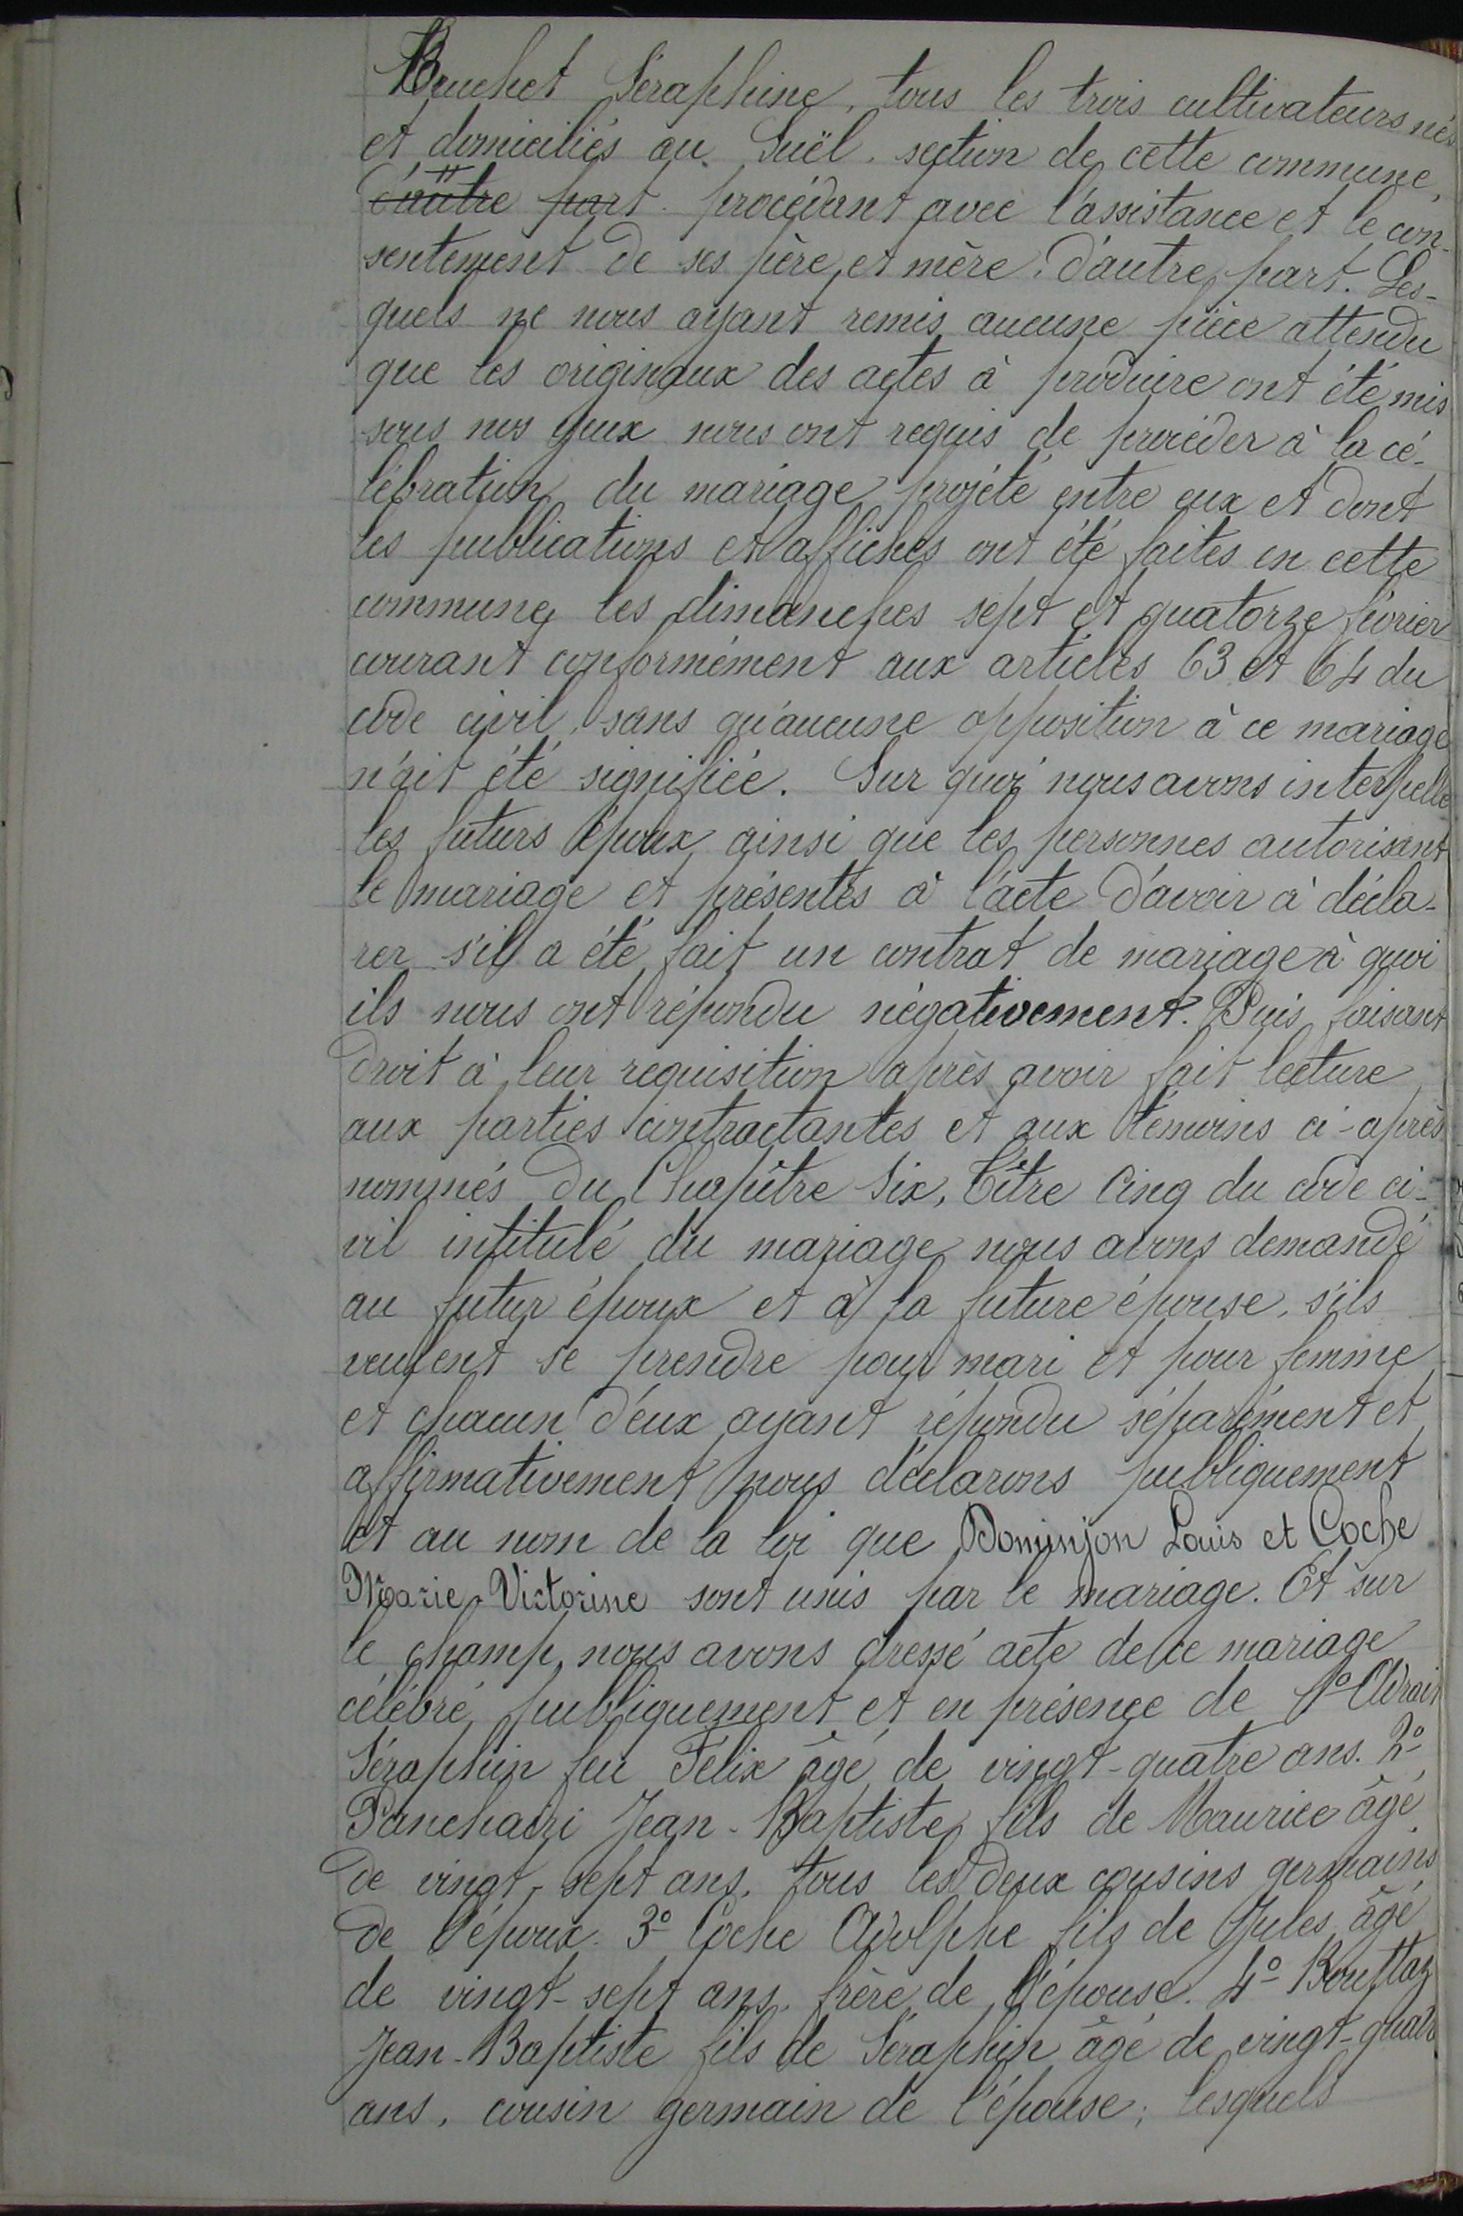 Bruchet Séraphine, tous les trois cultivateurs nés
et domiciliés au Suël. section de cette commune,
d'autre part. procédant avec l'assistance et le con-
sentement de ses père et mère. d'autre part. Les-
quels ne nous ayant remis aucune pièce attendu
que les originaux des actes à produire ont été mis
sous nos yeux nous ont requis de procéder à la cé-
lébration du mariage projété entre eux et dont
les publications et affiches ont été faites en cette
commune les dimanches sept et quatorze février
courant conformément aux articles 63 et 64 du
code civil, sans qu'aucune opposition à ce mariage
n'ait été signifiée. Sur quoi nous avons interpellé
les futurs époux ainsi que les personnes autorisant
le mariage et présentes à l'acte d'avoir à décla-
rer s'il a été fait un contrat de mariage à quoi
ils nous ont répondu négativement. Puis faisant
droit à leur requisition après avoir fait lecture
aux parties contractantes et aux témoins ci-après
nommés du Chapître Six, Tître Cinq du code ci-
vil intitulé du mariage nous avons demandé
au futur époux et à la future épouse, s'ils
veulent se prendre pour mari et pour femme
et chacun d'eux ayant répondu séparément et
affirmativement nous déclarons publiquement
et au nom de la loi que Dominjon Louis et Coche
Marie-Victorine sont unis par le mariage. Et sur
le champ, nous avons dressé acte de ce mariage
célébré publiquement et en présence de 1º Advait
Séraphin feu Félix âgé de vingt-quatre ans. 2º
Panchaizi Jean-Baptiste fils de Maurice âgé
de vingt-sept ans, tous les deux cousins germains
de l'époux. 3º Coche Adolphe fils de Jules âgé
de vingt-sept ans, frère de l'épouse. 4º Bouttaz
Jean-Baptiste fils de Séraphin âgé de vingt-quatre
ans, cousin germain de l'épouse; lesquels